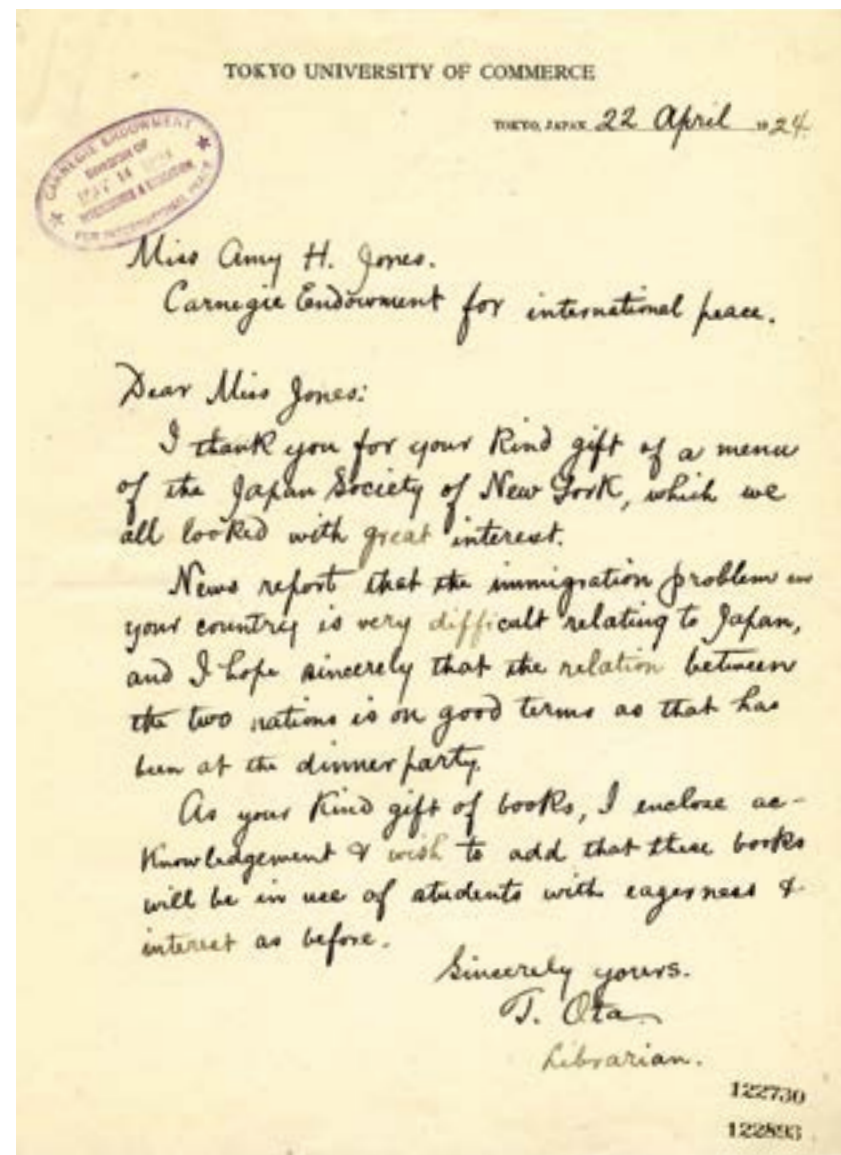 TOKYO UNIVERSITY OF COMMERCE
TOKYO, JAPAN 22 April 1924.
CARNEGIE ENDOWMENT
DIVISION OF
MAY 14 1924
INTERCOURSE & EDUCATION
FOR INTERNATIONAL PEACE
Miss Amy H. Jones.
Carnegie Endowment for international peace.
Dear Miss Jones:
I thank you for your kind gift of a menu
of the Japan Society of New York, which we
all looked with great interest.
News report that the immigration problem in
your country is very difficult relating to Japan,
and I hope sincerely that the relation between
the two nations is on good terms as that has
been at the dinner party.
As your kind gift of books, I enclose ac-
knowledgement & wish to add that these books
will be in use of students with eagerness &
interest as before.
Sincerely yours.
T. Ota
Librarian.
122730
122893